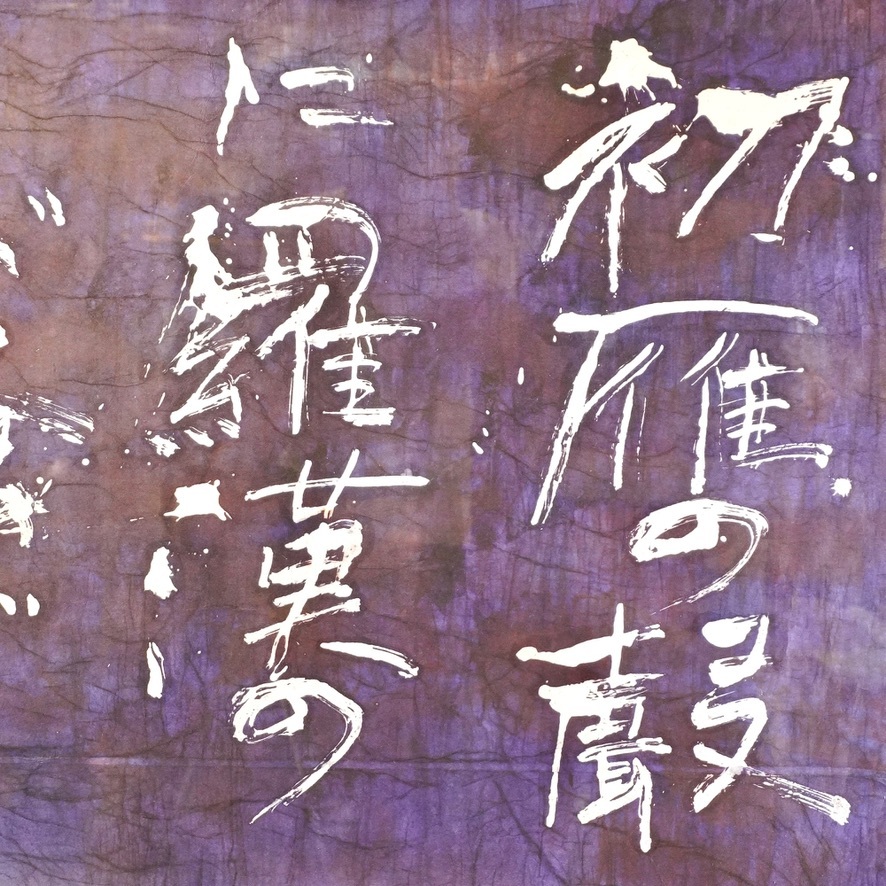 初雁の聲
に羅漢の